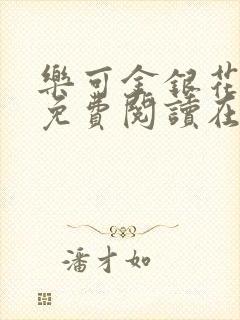 樂可金銀花
免費閱讀在
潘才如